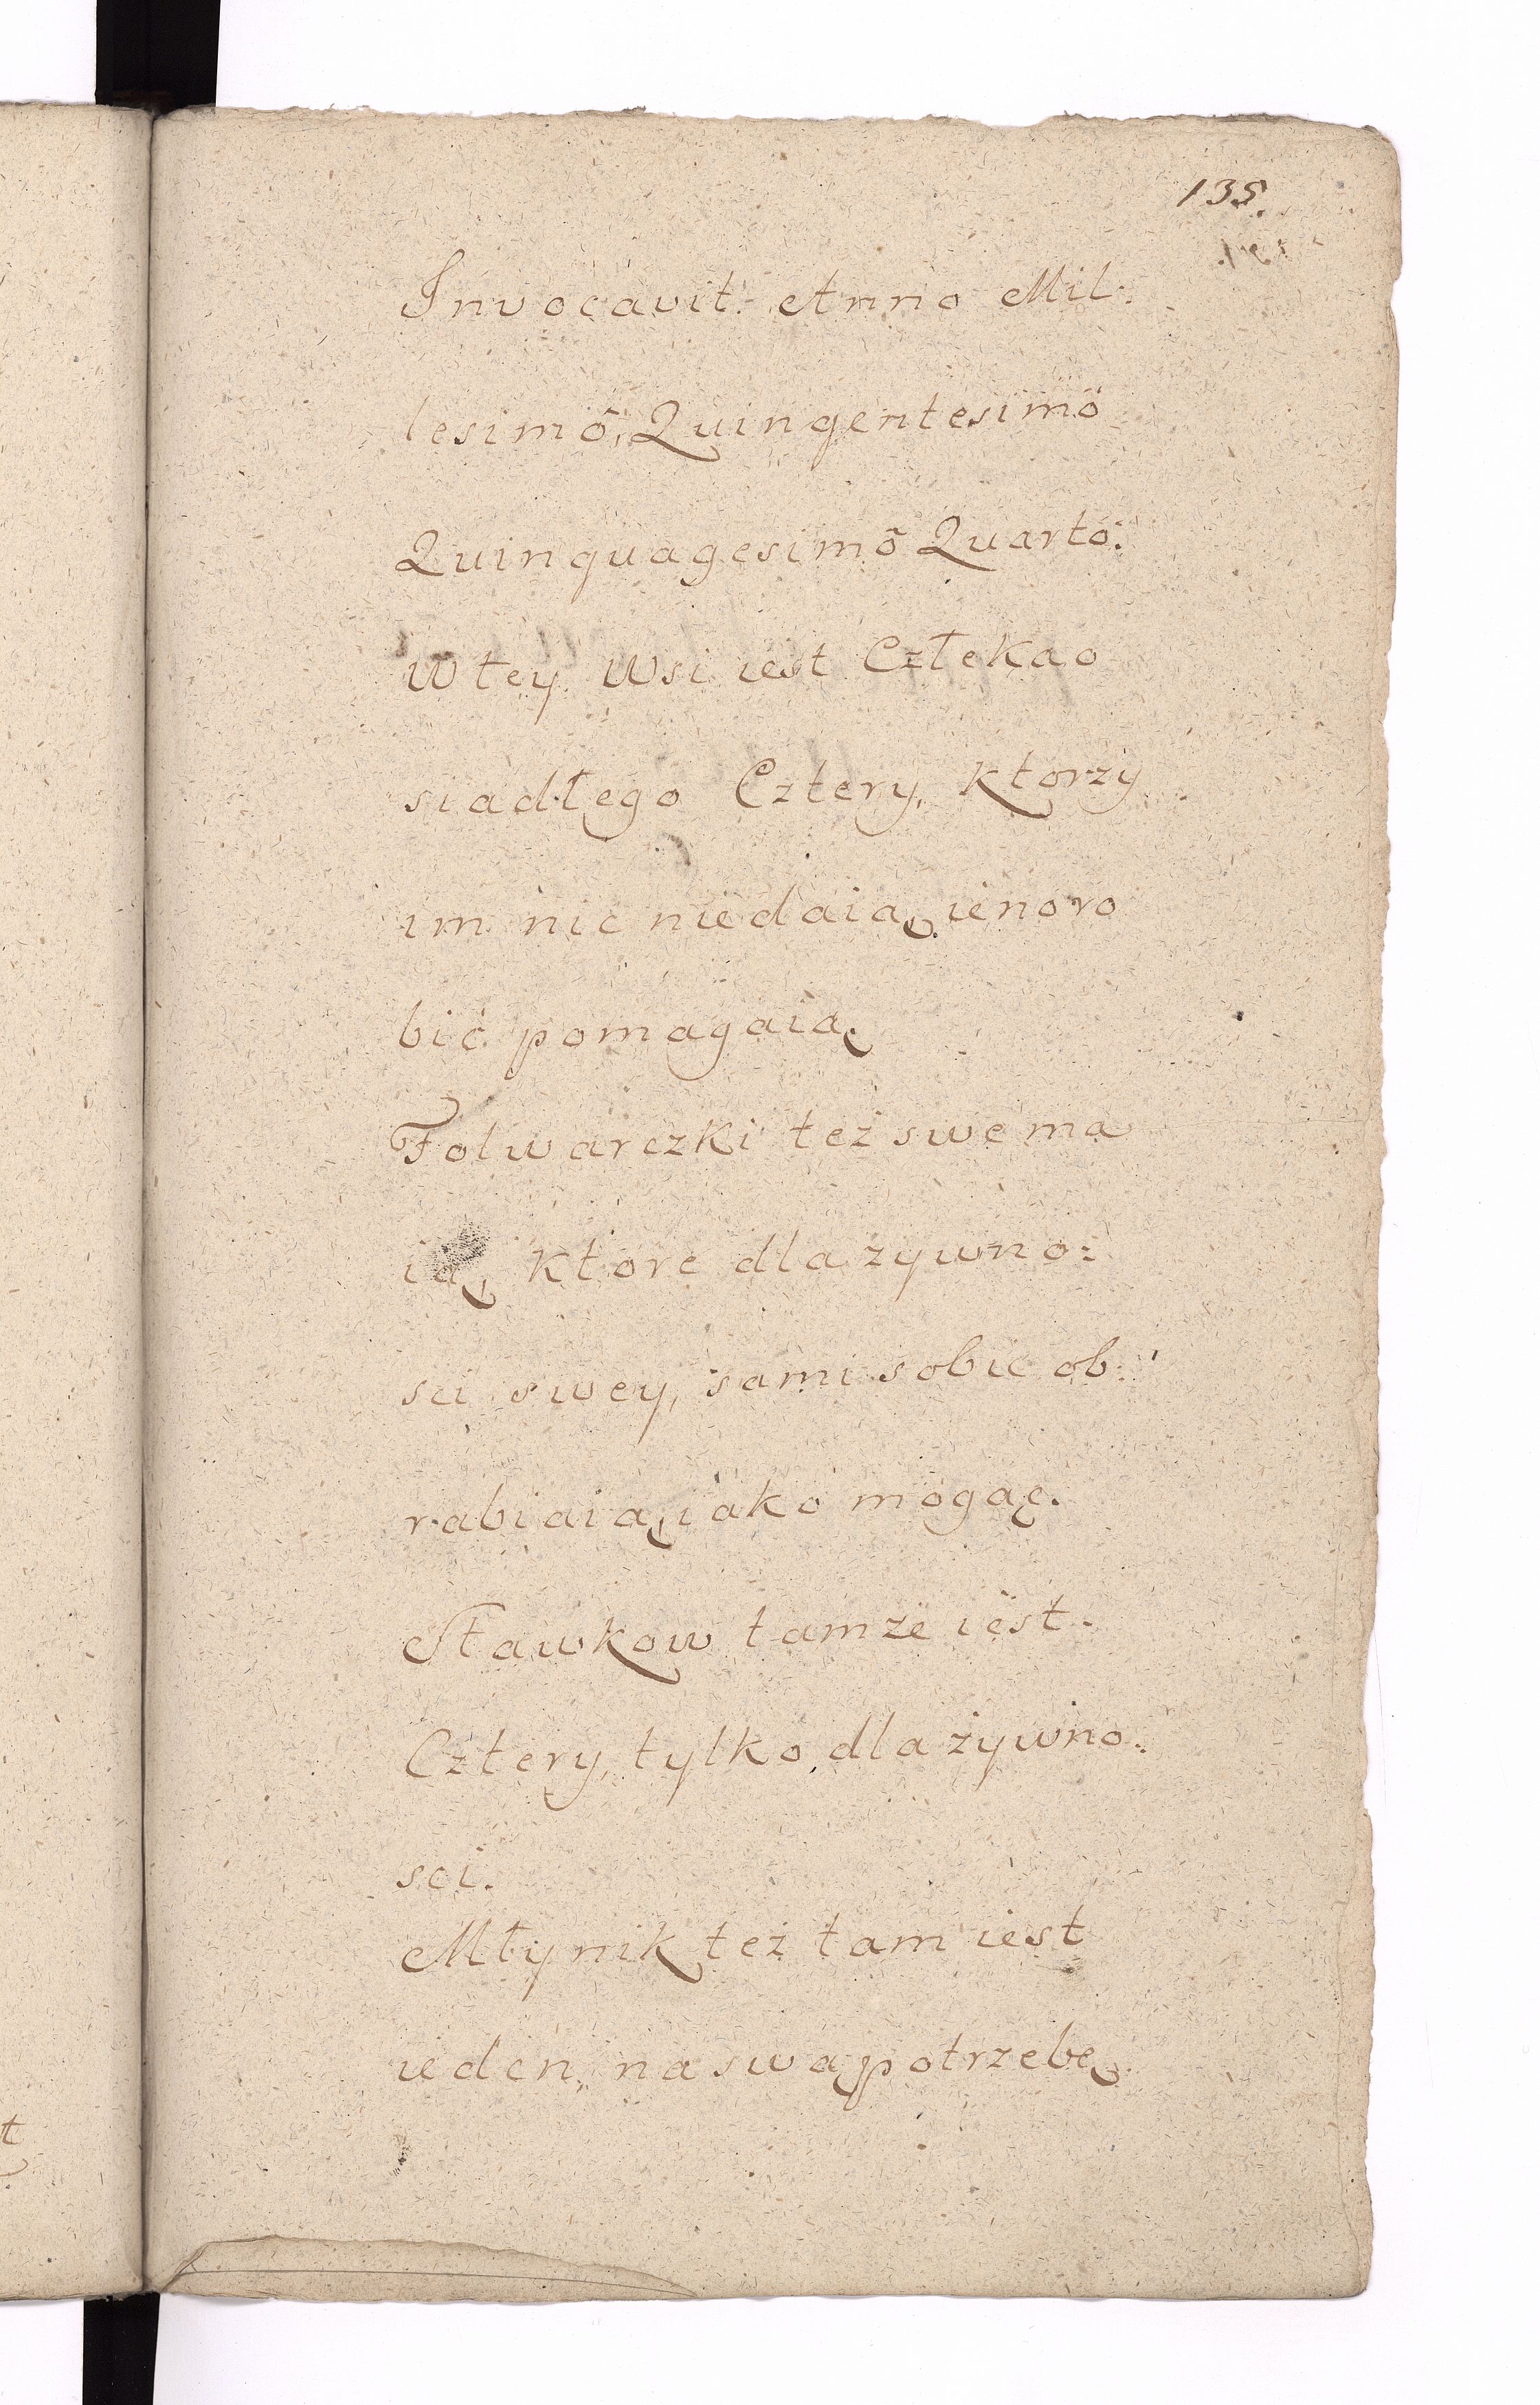 135.
Invocavit. Anno Mil:
lesimô, Quingentesimô
Quinquagesimô Quartô:
W tey Wsi iest Człeka o
siadłego Cztery, ktorzy
im nic niedaią, ieno ro
bić pomagaią.
Folwarczki też swe ma
ią, ktore dla zywno:
sci swey, sami sobie ob:
rabiaią, iako mogą.
Stawkow tamże iest
Cztery, tylko, dla żywno:
sci.
Młynik też tam iest
ieden, na swą potrzebę.